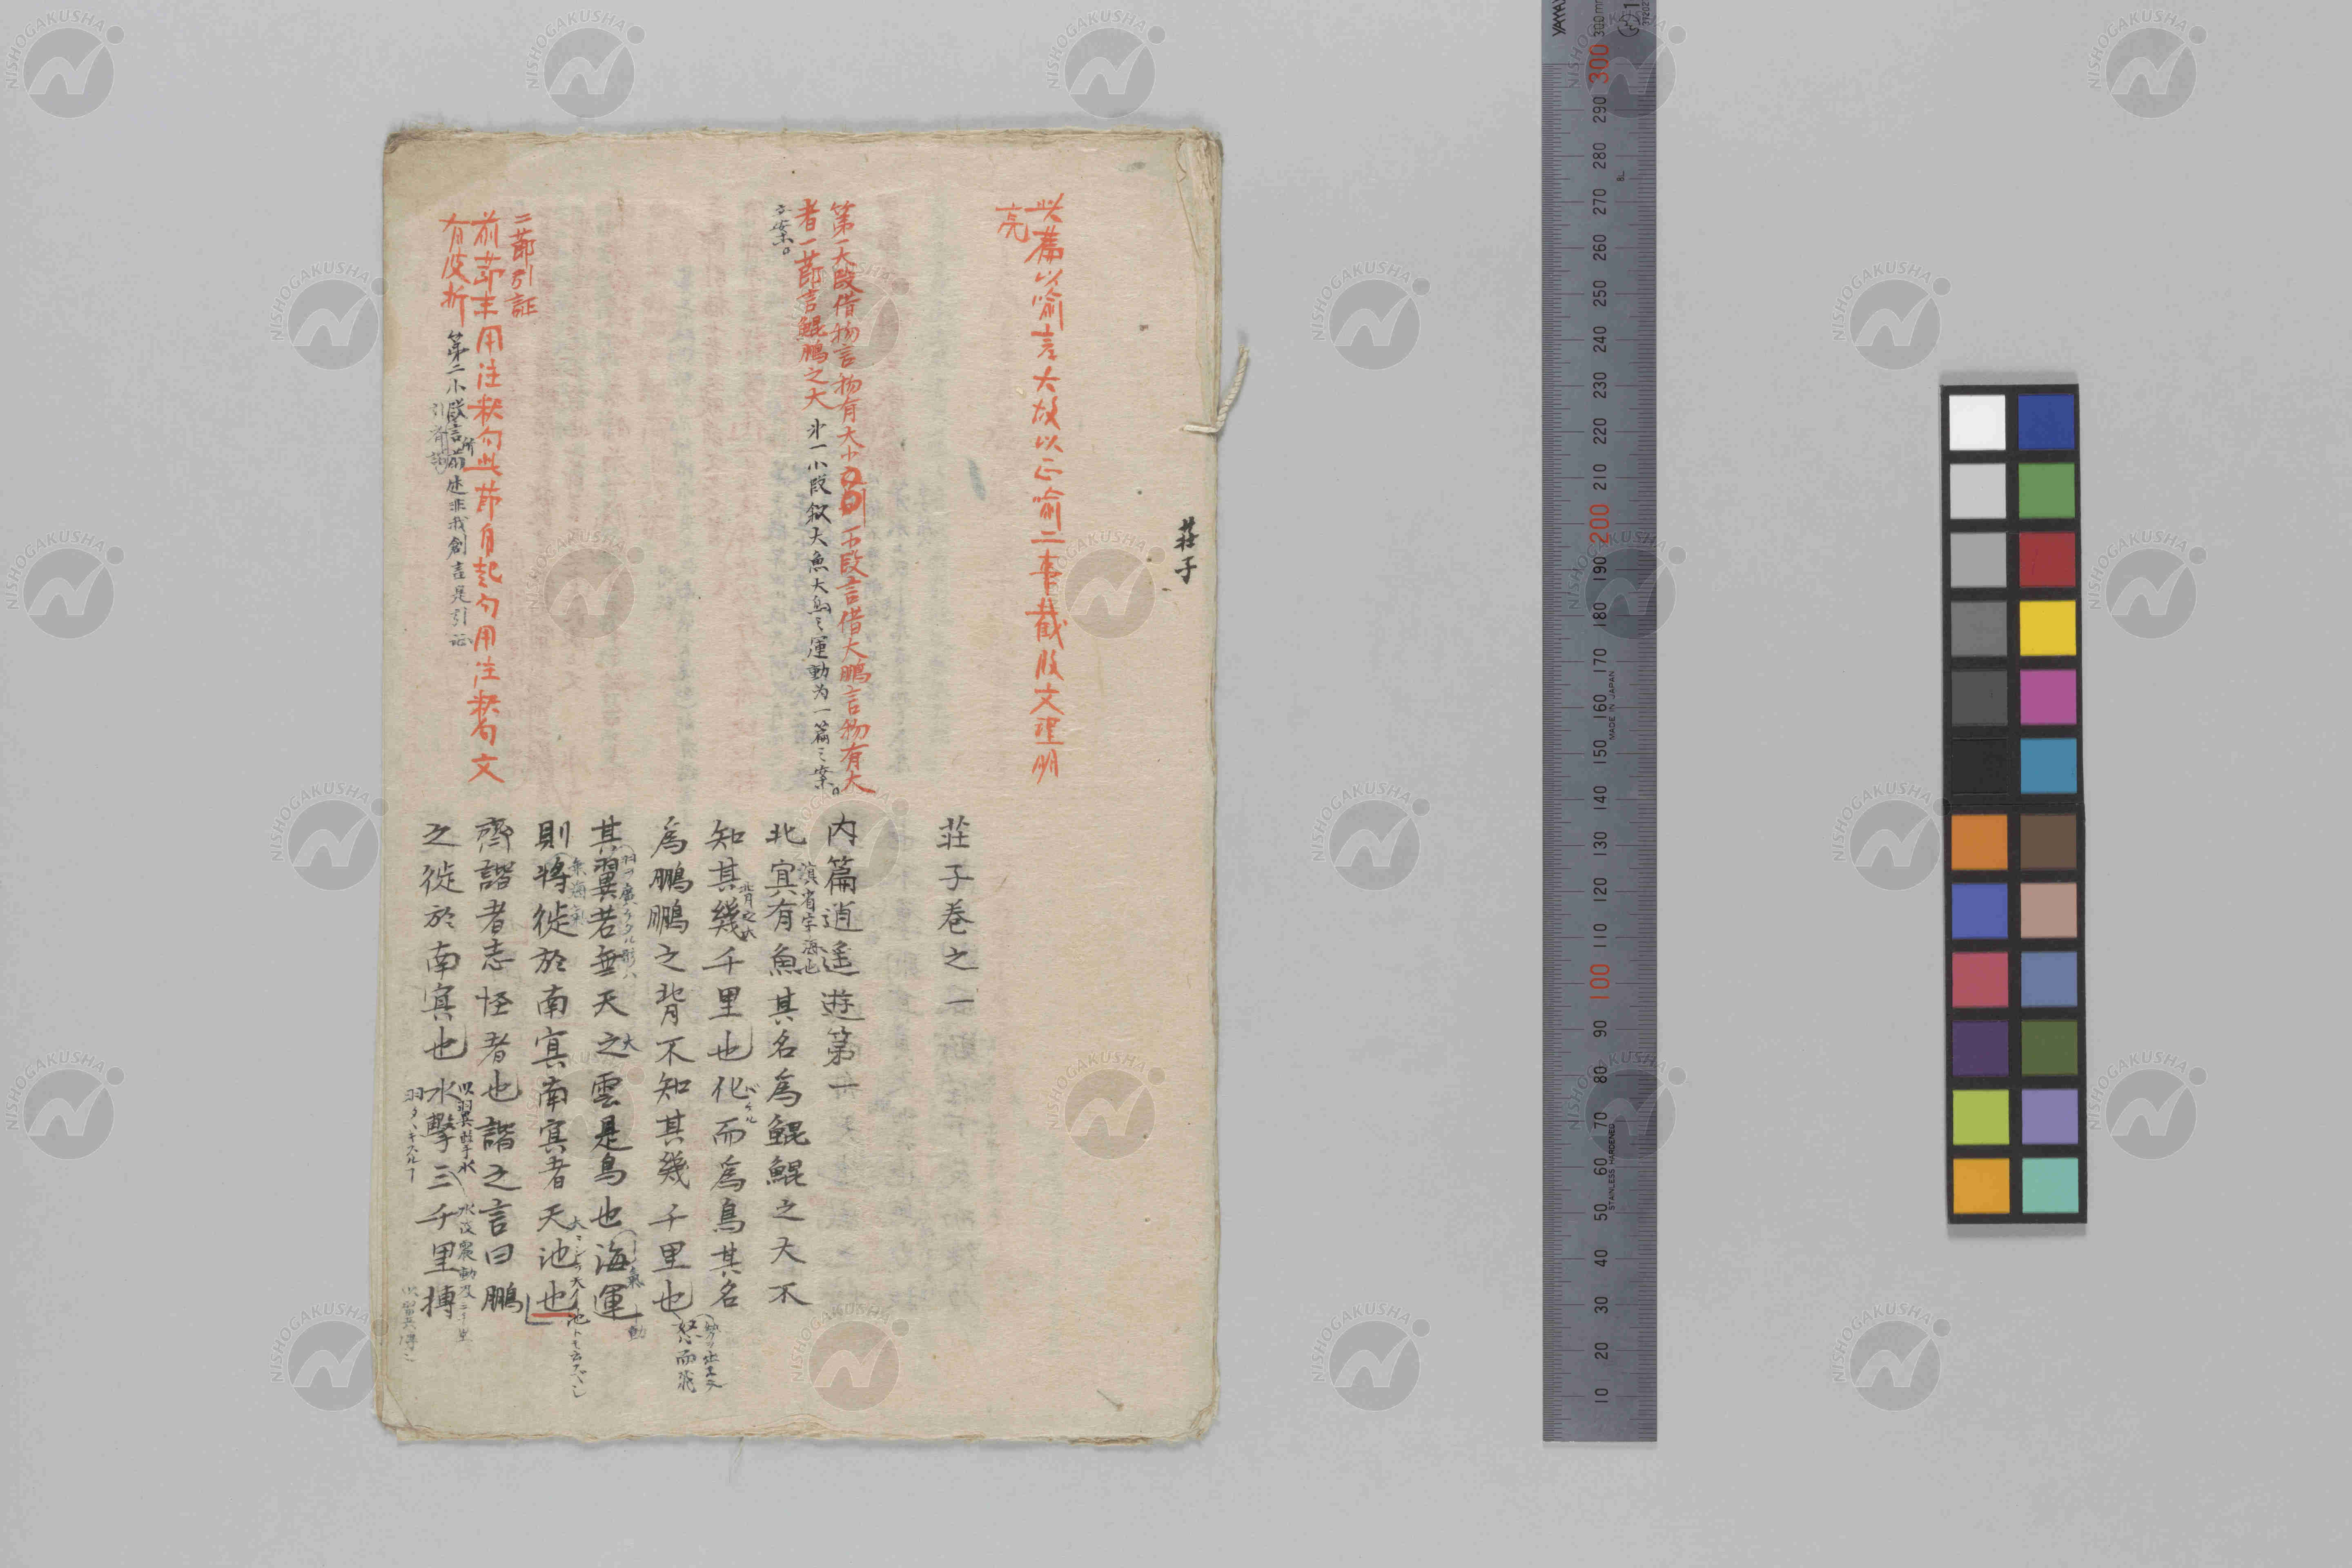 莊子
此篇以喻言大故以正喻二事截收文理明
亮
第一大段借物言物有大小之別一下段言借大鵬言物有大
者一節言鯤鵬之大
第一小段敘大魚大鳥之運動为一篇之案。
二節引証
前節末用注釈句此節自起句用注釈句文
有波折
第二小段言所前述非我創言是引証
莊子卷之一
內篇逍遙遊第一
溟省字海也
北冥有魚其名為鯤鯤之大不
背之大
知其幾千里也化而為鳥其名
バケル
為鵬鵬之背不知其幾千里也怒而飛
其翼若垂天之雲是鳥也海運
大
氣
動
則將徙於南冥南冥者天池也
乗海氣
齊諧者志怪者也諧之言曰鵬
之徙於南冥也水擊三千里搏
以羽翼擊水
水波震動及三千里
NISHOGAKUSHA
YAMA
300 mm
300 290 280 270 260 250 240 230 220 210 200 190 180 170 160 150 140 130 120 110 100 90 80 70 60 50 40 30 20 10
MADE IN JAPAN
STAINLESS HARDENED